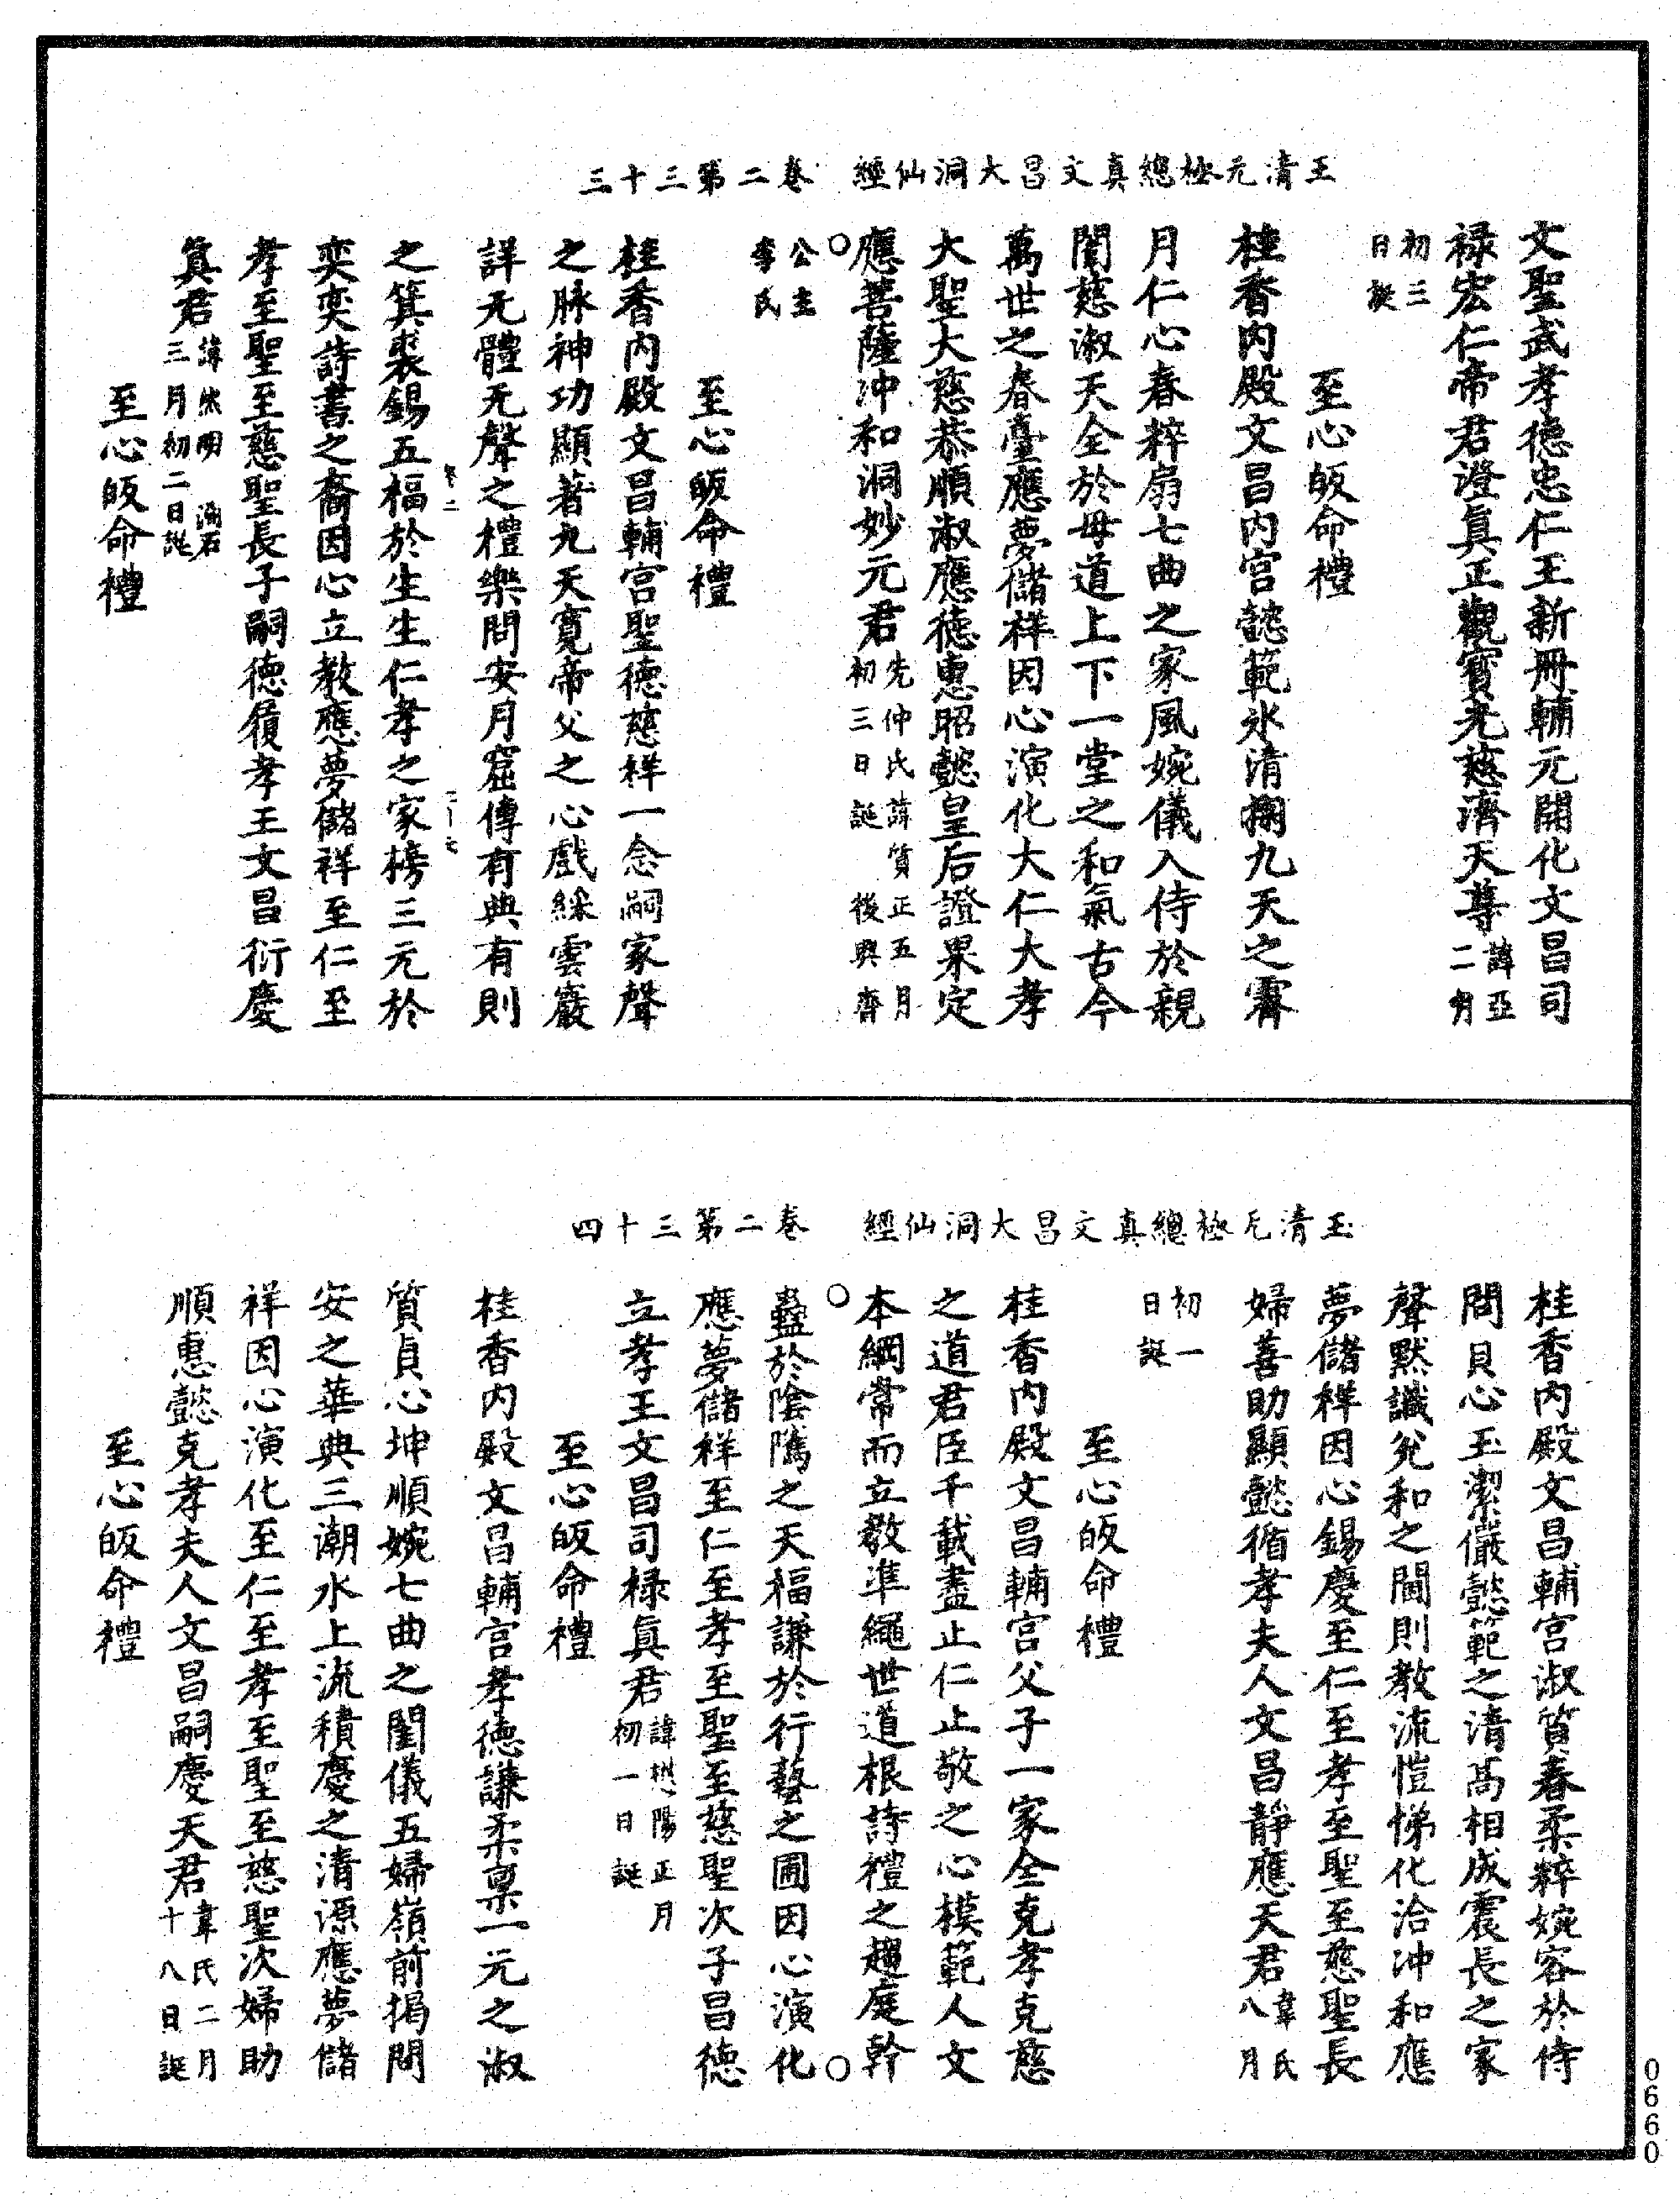 玉清元極總真文昌大洞仙經　卷二第三十三
文聖武孝德忠仁王新冊輔元開化文昌司
祿宏仁帝君澄眞正觀寶光慈濟天尊諱亞二月
初三日誕
至心皈命禮
桂香內殿文昌內宮懿範氷清掬九天之霽
月仁心春粹扇七曲之家風婉儀入侍於親
闈慈淑天全於毋道上下一堂之和氣古今
萬世之春臺應夢儲祥因心演化大仁大孝
大聖大慈恭順淑應德惠昭懿皇后證果定
應菩薩冲和洞妙元君先仲氏諱質正五月初三日誕　後興齊
公主李氏
至心皈命禮
桂香內殿文昌輔宮聖德慈祥一念嗣家聲
之脉神功顯著九天寬帝父之心戲綵雲巖
詳无體无聲之禮樂問安月窟傳有典有則
之箕裘錫五福於生生仁孝之家榜三元於
奕奕詩書之裔因心立教應夢儲祥至仁至
孝至聖至慈聖長子嗣德履孝王文昌衍慶
眞君諱 明 石三月初二日誕
至心皈命禮
玉清元極總真文昌大洞仙經　卷二第三十四
桂香內殿文昌輔宮淑質春柔粹婉容於侍
問貝心玉潔儼懿範之清高相成震長之家
聲黙識兌和之閫則教流愷悌化洽冲和應
夢儲祥因心錫慶至仁至孝至聖至慈聖長
婦善助顯懿循孝夫人文昌靜應天君韋氏八月
初一日誕
至心皈命禮
桂香內殿文昌輔宮父子一家全克孝克慈
之道君臣千載盡止仁止敬之心模範人文
本綱常而立教準繩世道根詩禮之趨庭幹
蠱於陰隲之天福謙於行藝之圃因心演化
應夢儲祥至仁至孝至聖至慈聖次子昌德
立孝王文昌司祿眞君諱 陽正月初一日誕
至心皈命禮
桂香內殿文昌輔宮孝德謙柔稟一元之淑
質貞心坤順婉七曲之閨儀五婦嶺前揭問
安之華典三潮水上流積慶之清源應夢儲
祥因心演化至仁至孝至聖至慈聖次婦助
順惠懿克孝夫人文昌嗣慶天君韋氏二月十八日誕
至心皈命禮
0660